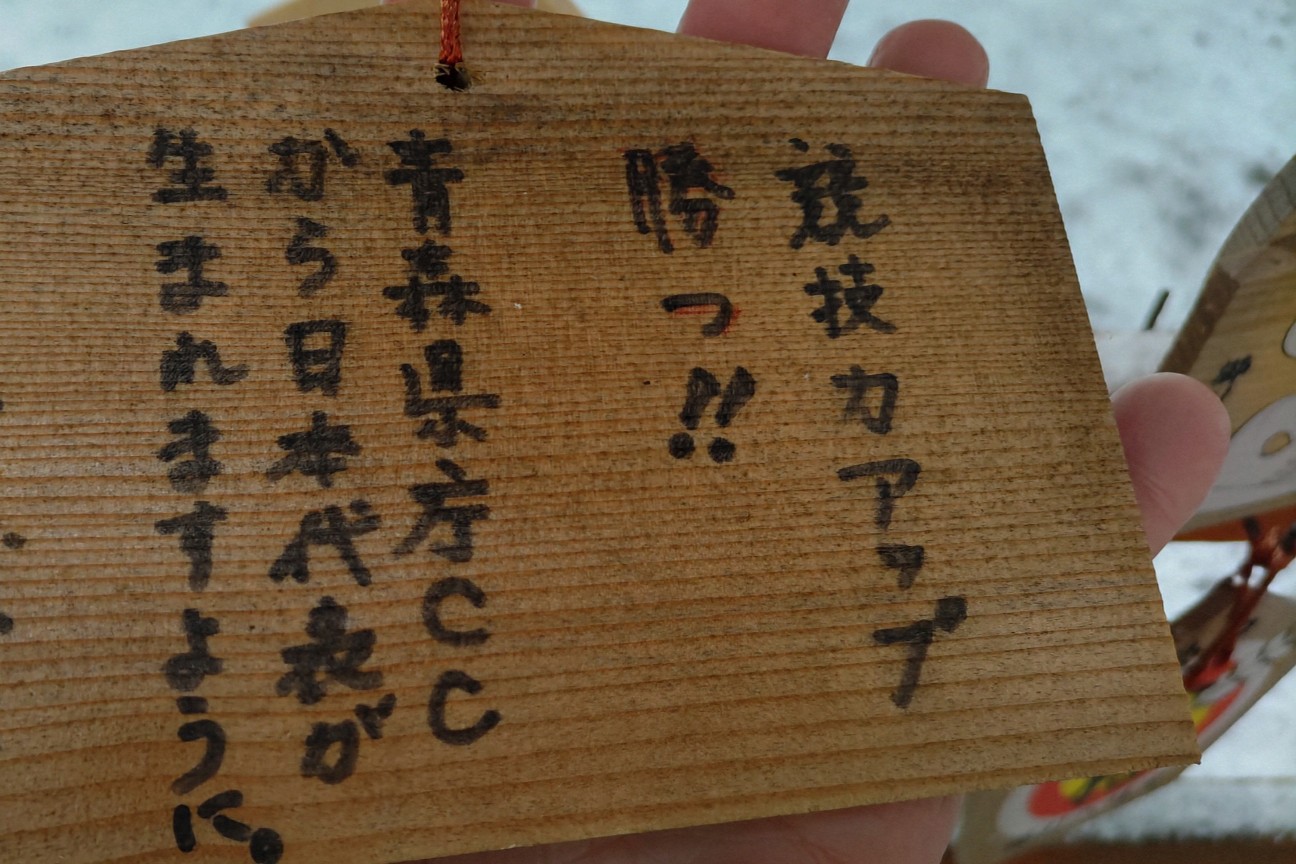 競技力アップ
勝つ!!
青森県庁CC
から日本代表が
生まれますように。